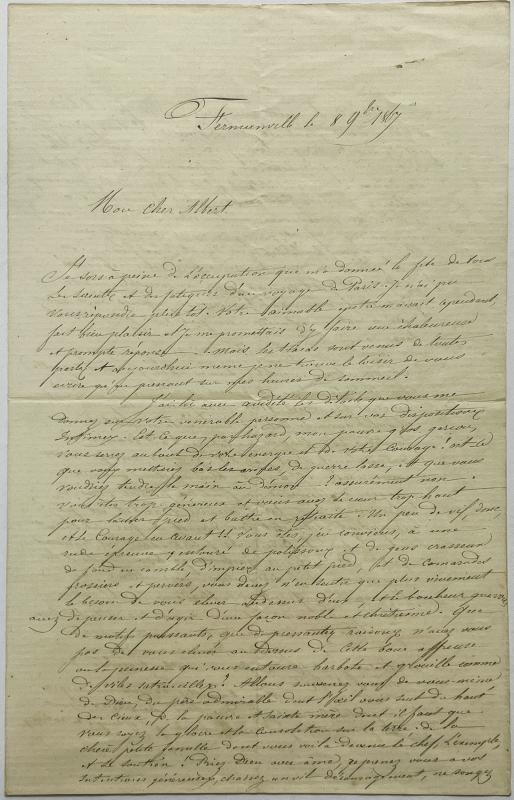 le 8 9bre 1867
Mon cher Albert.
Je sors à peine de l'occupation que m'a donnée la fête de tous
les saints et des fatigues d'un voyage de Paris. Je n'ai pu
vous répondre plus tôt. Votre aimable m'avait cependant
fait bien plaisir et je me promettais d'y faire une chaleureuse
et prompte réponse. Mais les tracas sont venus de toutes
parts et aujourd'hui même je ne trouve le loisir de vous
écrire qu'en prenant sur mes heures de sommeil.
J'ai lu avec avidité les détails que vous me
donnez sur votre vénérable personne et sur vos dispositions
intimes. Est-ce que, par hazard, mon pauvre gros garçon,
vous seriez au bout de votre énergie et de votre courage! est-ce
que vous mettriez bas les armes, de guerre lasse, et que vous
voudriez tendre la main au démon? assurément non.
Vous êtes trop généreux et vous avez le cœur trop haut
pour lâcher pied et battre en retraite. Un peu de nerf, donc,
et le courage en avant!! Vous êtes, j'en conviens, à une
rude épreuve, entouré de polissons et de gens crasseux
de fond en comble, d'impies au petit pied, et de camarades
grossiers et pervers, vous devez n'en sentir que plus vivement
le besoin de vous élever au dessus d'eux le bonheur que vous
avez de penser et d'agir d'une façon noble et chrétienne. Que
de motifs puissants, que de pressantes raisons n'avez vous
pas de vous élever au dessus de cette boue affreuse
où la jeunesse qui vous entoure barbote et grouille comme
de viles Allons souvenez vous de vous même
de Dieu, du père admirable dont l'œil vous suit de haut
des cieux, de la pauvre et sainte mère dont il faut que
vous soyez la gloire et la consolation sur la terre. de la
chère petite famille dont vous voilà devenu le chef, l'exemple,
et le soutien! Priez Dieu avec âme, reprenez vous à vos
intentions généreuses, chassez un vil découragement, ne songez